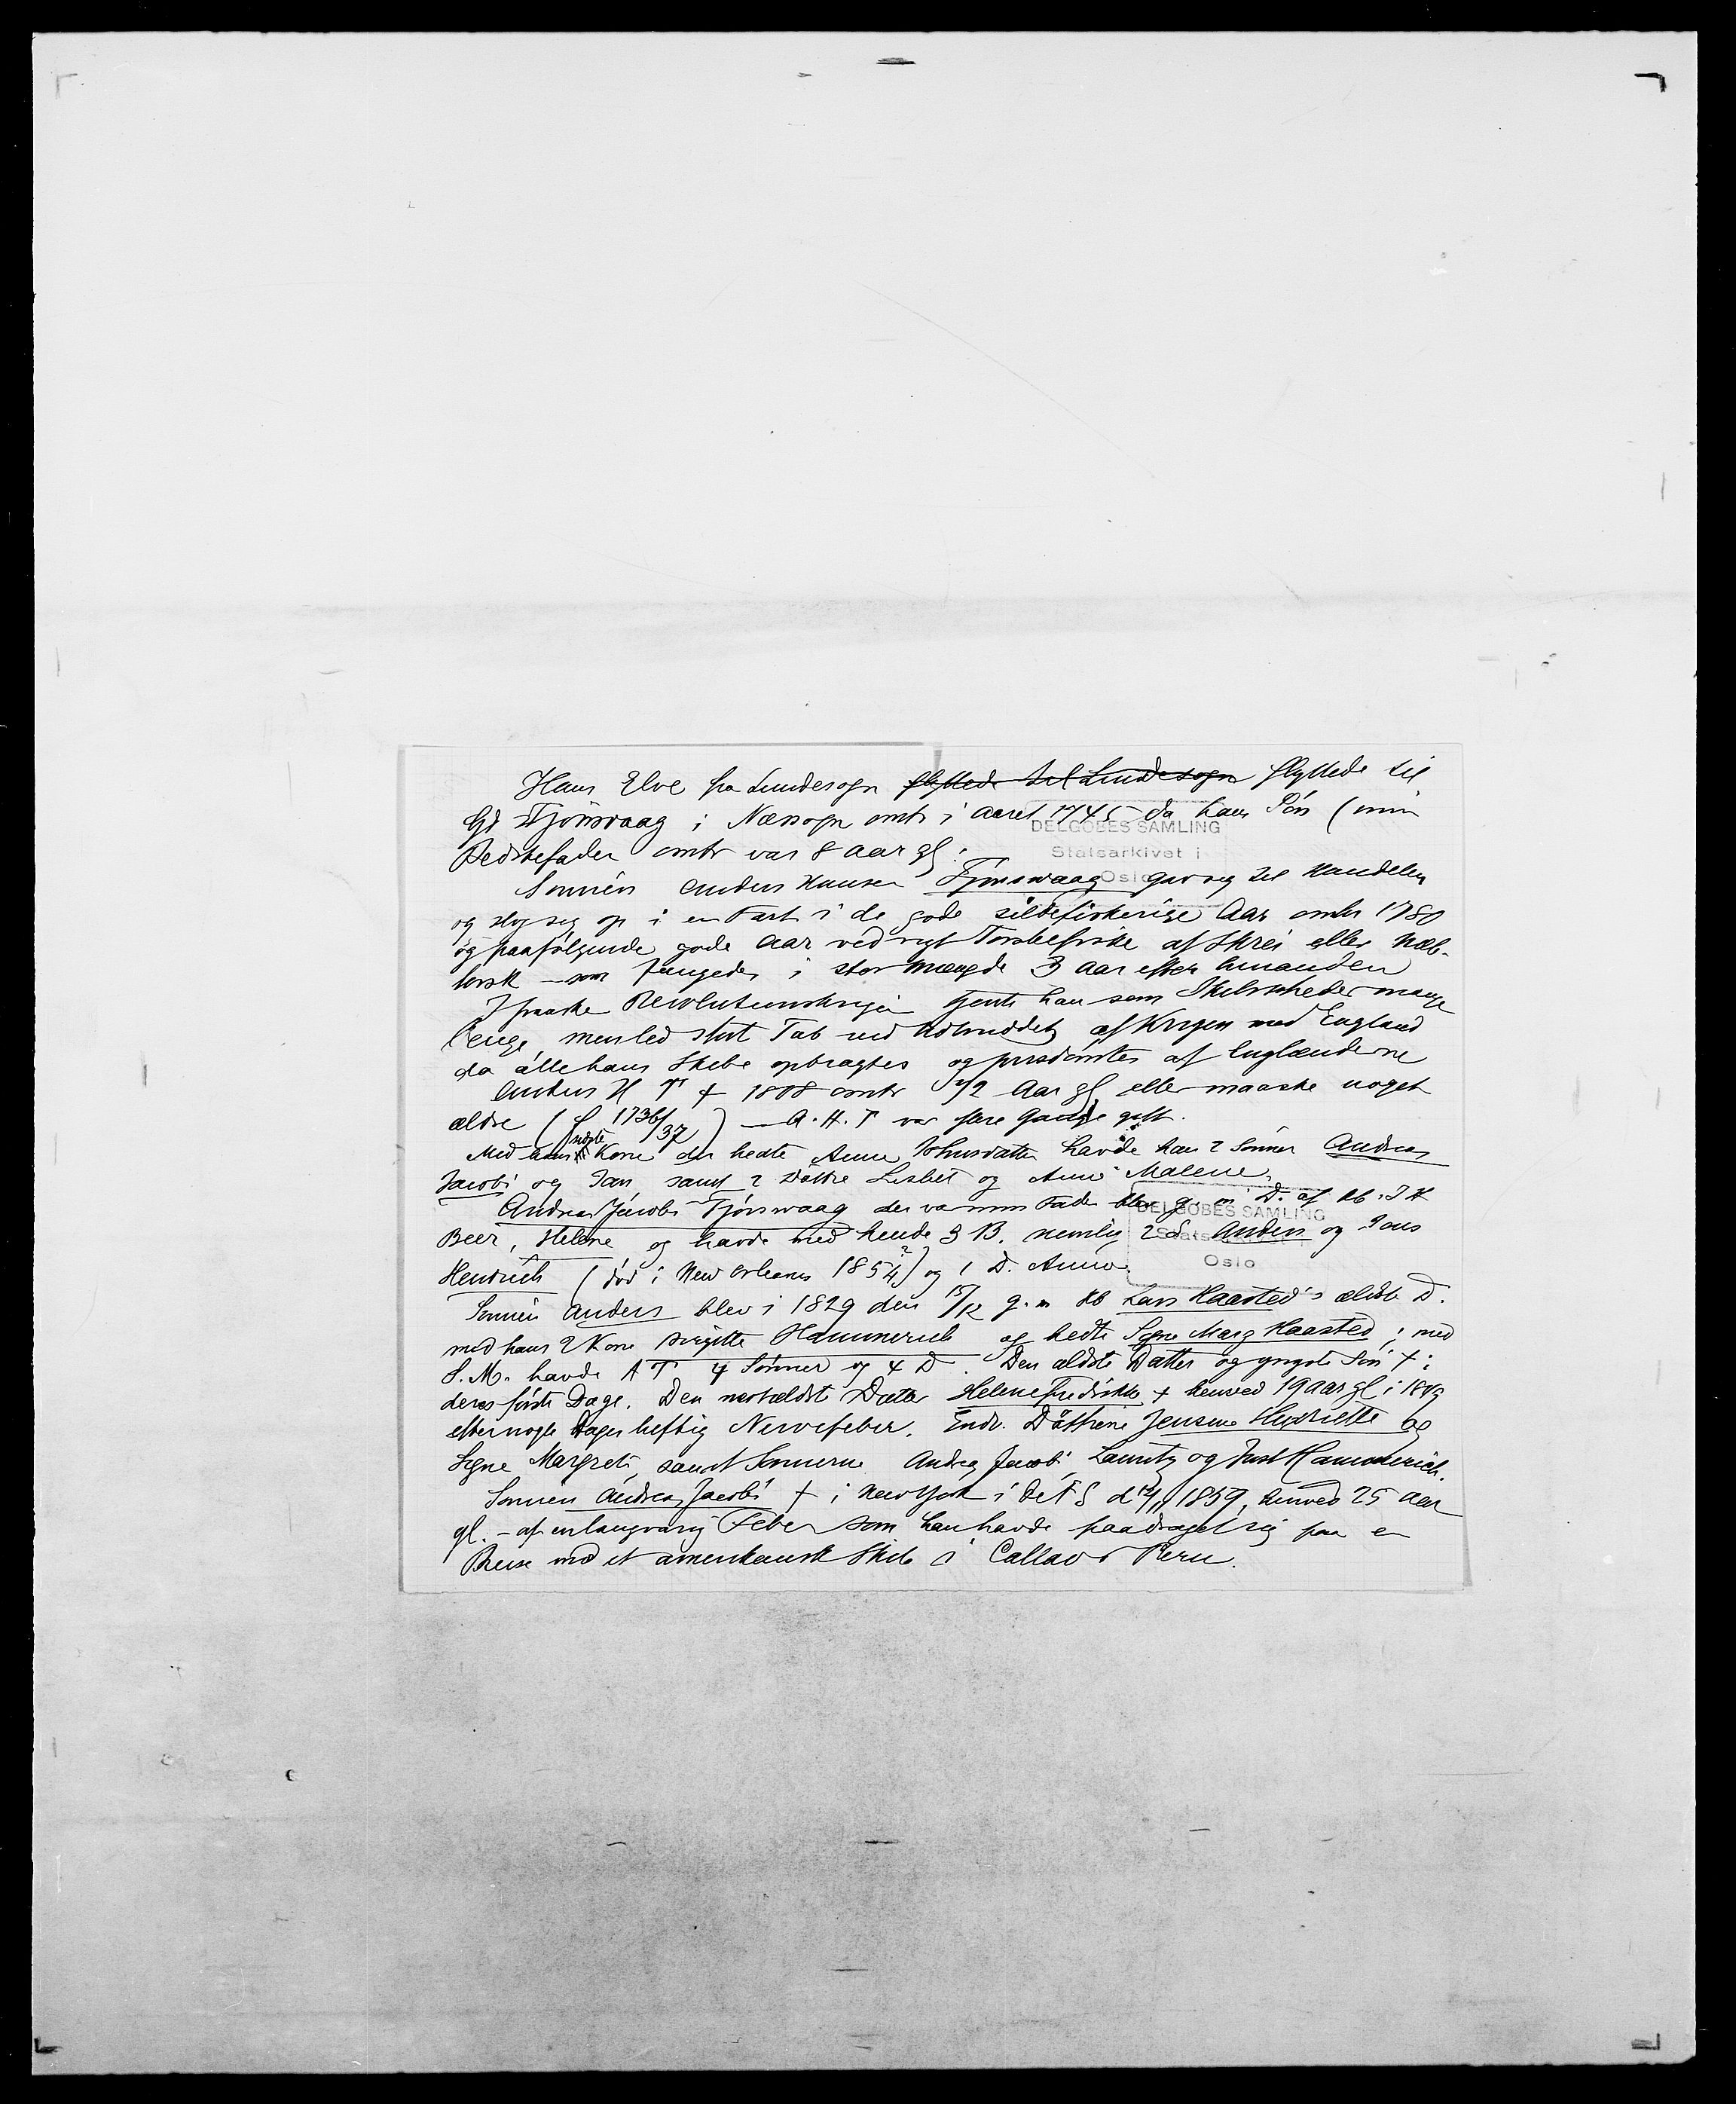 Hans Elve fra Lundesogn flyttede til Lundesogn flyttede til
Gd Tjörsvaag i Næssogn omtr i aaret 1745 da hans Sön (min
DELGOBES SAMLING
Bedstefader omtr var 8 aar gl.
Statsarkivet i
Oslo
Sönnen Anders Hansen Tjörswaag gav sig til Handelen
og slog sig op i en Fart i de gode sildefiskerige Aar omtr 1780
og paafölgende gode Aar ved rigt Torskefiske af Skrei eller
torsk – som fangedes i stor Mængde 3 Aar efter hinanden
I franske Revolutionskrigen tjente han som Skibsrheder mange
Penge, men led stort Tab ved Udbruddet af Krigen med England
da alle hans Skibe opbragtes og prisdömtes af Englænderne
Anders H T † 1808 omtr 72 Aar gl, eller maaske noget
ældre (f 1736/37) — A. H. T var flere Gange gift.
Med hans Kone der hedte Anne havde han 2 Sönner Andreas
Jacobi og Jan samt 2 Döttre Lisbet og Anne Malene.
Andreas Jacobi Tjörswaag der var min Fader blev g. m D. af Kb. J H
DELGOBES SAMLING
Beer, Helene og havde med hende 3 B. nemlig 2 S. Anders og Jens
Statsarkivet i
Hendrich (död i New Orleans 1854?) og 1 D. Anne.
Oslo
Sönnen Anders blev i 1829 den 15/12 g. m Kb Lars Haasted's ældste D.
med hans 2 Kone Birgitte Hammerich og hedte Signe Marg Haasted; med
S. M. havde A T 4 Sönner og 4 D. Den ældste Datter og yngste Sön † i
deres förste Dage. Den næstældste Datter Helene Fredrikke † henved 19 aar gl i
efter nogle Dages heftig Nervefeber. Endv. Döttrene Jensine Henriette og
Signe Margrete, samt Sönnerne Andreas Jacobi, Lauritz og Just Hammerich.
Sönnen Andreas Jacobi † i New York i 1859, henved 25 Aar
gl. – af en langvarig Feber som han havde paadraget sig paa en
Reise med et amerikansk Skib i Callao i Peru.